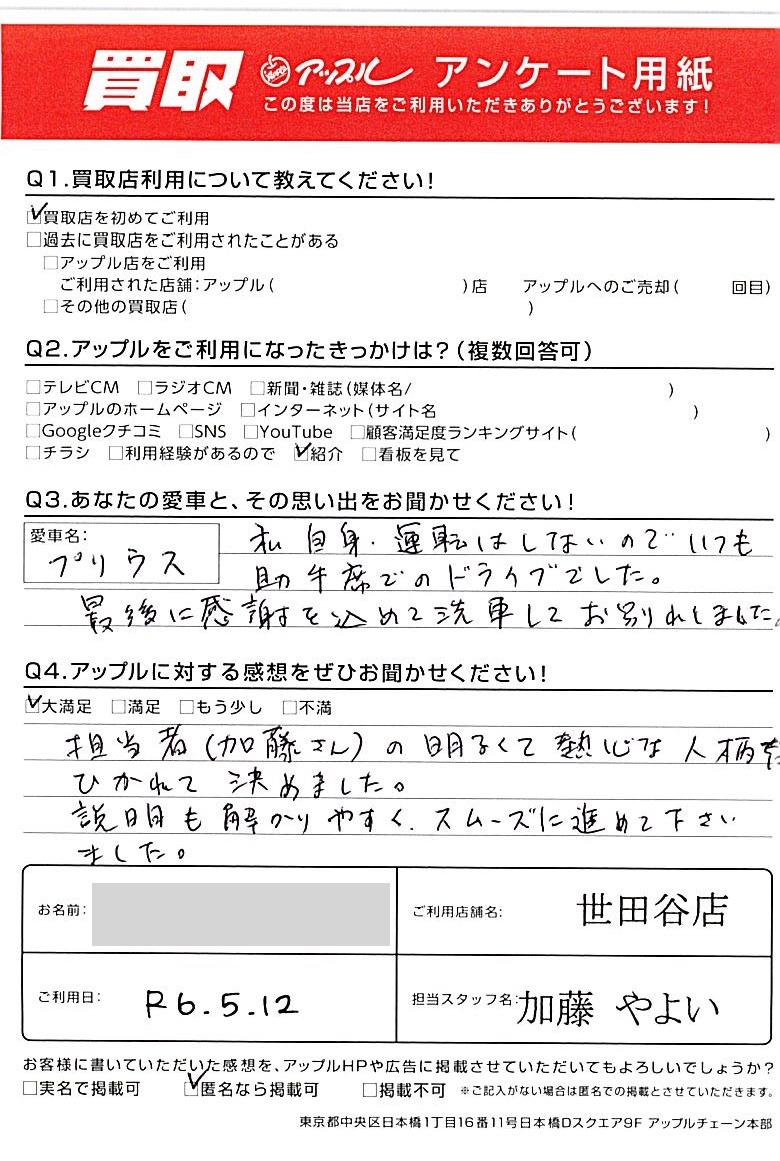 買取 アップル アンケート用紙
この度は当店をご利用いただきありがとうございます!
Q1.買取店利用について教えてください!
☑買取店を初めてご利用
□過去に買取店をご利用されたことがある
□アップル店をご利用
ご利用された店舗:アップル( )店 アップルへのご売却( 回目)
□その他の買取店( )
Q2.アップルをご利用になったきっかけは?(複数回答可)
□テレビCM □ラジオCM □新聞・雑誌(媒体名/ )
□アップルのホームページ □インターネット(サイト名 )
□Googleクチコミ □SNS □YouTube □顧客満足度ランキングサイト( )
□チラシ □利用経験があるので ☑紹介 □看板を見て
Q3.あなたの愛車と、その思い出をお聞かせください!
愛車名:
プリウス
私自身.運転はしないのでいつも
助手席でのドライブでした。
最後に感謝を込めて洗車してお別れしました。
Q4.アップルに対する感想をぜひお聞かせください!
☑大満足 □満足 □もう少し □不満
担当者(加藤さん)の明るくて熱心な人柄に
ひかれて決めました。
説明も解かりやすく.スムーズに進めて下さい
ました。
お名前:
ご利用店舗名: 世田谷店
ご利用日: R6.5.12
担当スタッフ名: 加藤 やよい
お客様に書いていただいた感想を、アップルHPや広告に掲載させていただいてもよろしいでしょうか?
□実名で掲載可 ☑匿名なら掲載可 □掲載不可 ※ご記入がない場合は匿名での掲載とさせていただきます。
東京都中央区日本橋1丁目16番11号日本橋Dスクエア9F アップルチェーン本部